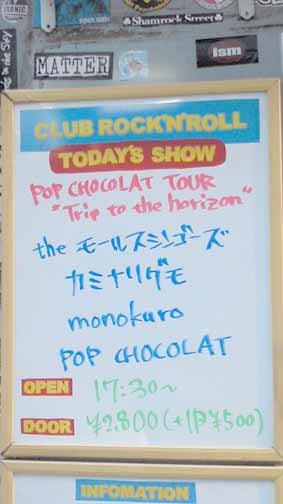 Shamrock Street
MATTER
ism
CLUB ROCK'N'ROLL
TODAY'S SHOW
POP CHOCOLAT TOUR
"Trip to the horizon"
the モールスシンゴーズ
カミナリグモ
monokuro
POP CHOCOLAT
OPEN 17:30~
DOOR ¥2,800(+1D¥500)
INFOMATION